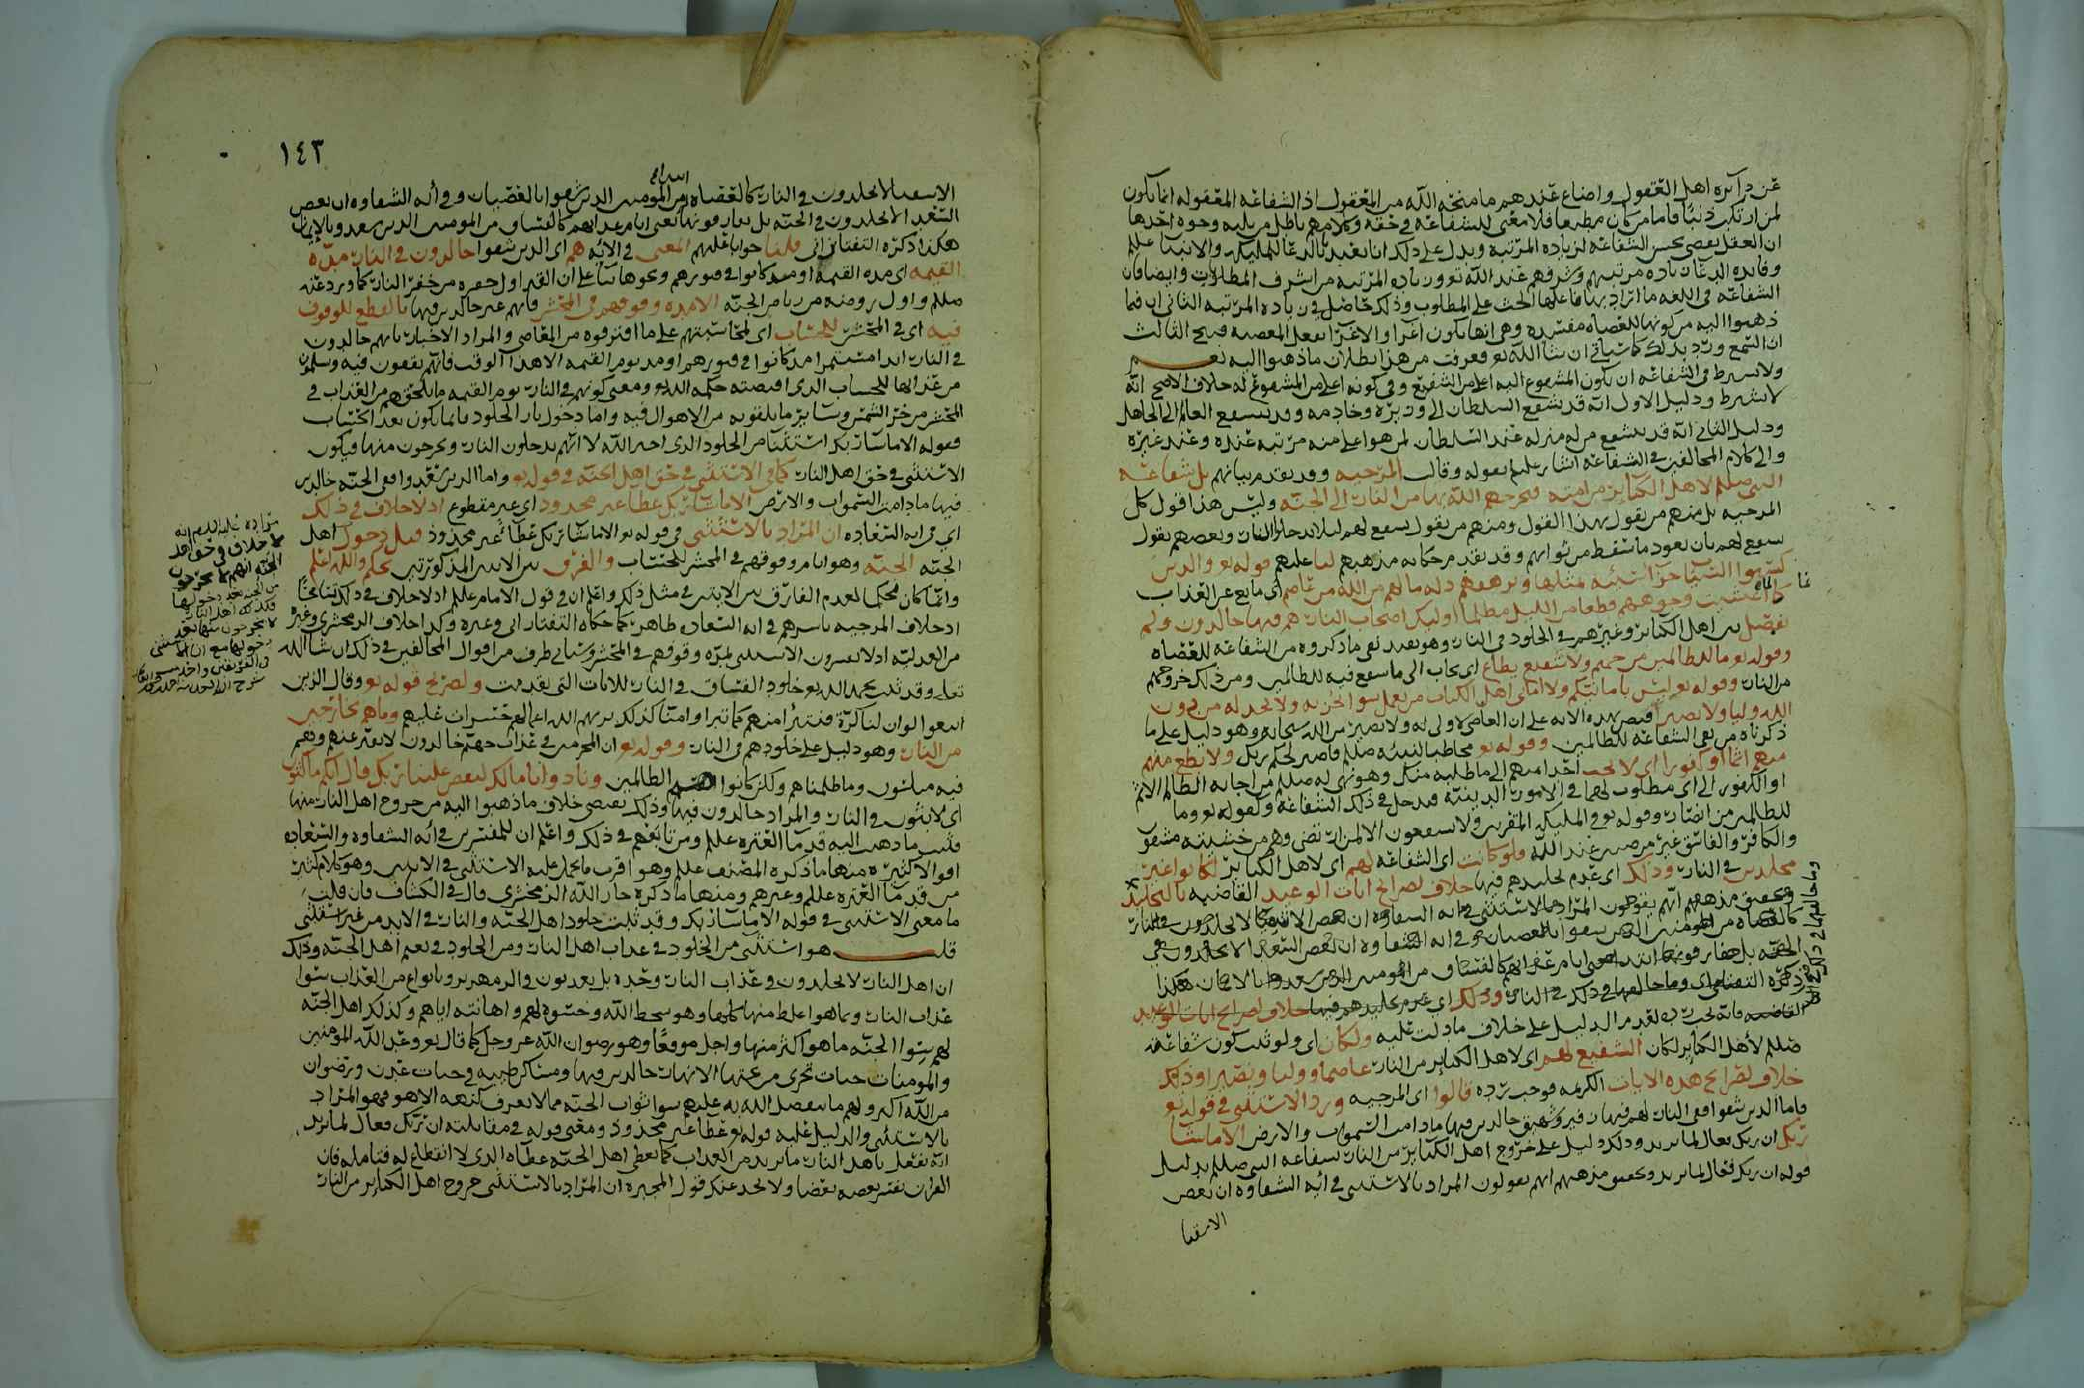 عن دائرة اهل العقول واضاع عندهم ما منحه الله من المعقول اذ الشفاعة المعقولة انما يكون
لمن ارتكب ذنبا فاما من كان مطيعا فلا معنى للشفاعة في حقه وكلامهم باطل من وجوه احدها
ان العقل يقضي بحسن الشفاعة لزيادة المرتبة ويدل على ذلك انا نتعبد بالدعا للمليكة والانبيا عللم
وفايدة الدعا زيادة مرتبتهم وشرفهم عند الله تع وزيادة المرتبة من اشرف المطالبات وايضا فان
الشفاعة في اللغة ما يراد بها فاعلها الحث على المطلوب وذلك حاصل في زيادة المرتبة الثاني ان فيما
ذهبوا اليه من كونها للعصاة مفسدة وهي انها يكون اغرا والاغرا بفعل المعصية قبيح الثالث
ان السمع ورد بذلك كما سياتي ان شا الله تع فعرفت من هذا بطلان ما ذهبوا اليه نعم
ولا يشترط في الشفاعة ان يكون المشفوع اليه اعلى من الشفيع وفي كونه اعلى من المشفوع له خلاف الاصح انه
لا يشترط ودليل الاول انه قد يشفع السلطان الى وزيره وخادمه وقد يشفع العالم الى الجاهل
ودليل الثاني انه قد يشفع من له منزلة عند السلطان لمن هو اعلى منه مرتبة عنده وعند غيره
والى كلام المخالفين في الشفاعة اشار عللم بقوله وقالت المرجية وقد تقدم بيانهم بل شفاعة
النبي صللم لاهل الكبائر من امته فيخرجهم الله بها من النار الى الجنة وليس هذا قول كل
المرجية بل منهم من يقول بهذا القول ومنهم من يقول يشفع لهم ليلا يدخلوا النار وبعضهم يقول
يشفع لهم بان يعود ما سقط من ثوابهم وقد تقدم حكاية مذهبهم لنا عليهم قوله تع والذين
كسبوا السيئات جزاء سيئة بمثلها وترهقهم ذلة ما لهم من الله من عاصم اي مانع عن العذاب
كانما اغشيت وجوههم قطعا من الليل مظلما اوليك اصحاب النار هم فيها خالدون ولم
يفصل بين اهل الكبائر وغيرهم في الخلود في النار وهو يفيد نفي ما ذكروه من الشفاعة للعصاة
وقوله تع ما للظالمين من حميم ولا شفيع يطاع اي يجاب الى ما يشفع فيه للظالمين ومن ذلك خروجهم
من النار وقوله تع ليس بامانيكم ولا اماني اهل الكتاب من يعمل سوا يجز به ولا يجد له من دون
الله وليا ولا نصيرا فنص بهذه الاية على ان العاصي لا ولي له ولا نصير من الله سبحانه وهو دليل على ما
ذكرناه من نفي الشفاعة للظالمين وقوله تع مخاطبا لنبيه صللم فاصبر لحكم ربك ولا تطع منهم
منهم اثما او كفورا اي لا تجب احدا منهم الى ما طلبه منك وهو نهي له صللم من اجابة الظالم الاثم
او الكفور الى اي مطلوب لهما في الامور الدينية فدخل في ذلك الشفاعة وكقوله تع وما
للظالمين من انصار وقوله تع في المليكة المقربين ولا يشفعون الا لمن ارتضى وهم من خشيته مشفقون
والكافر والفاسق غير مرضيين عند الله فلو كانت اي الشفاعة لهم اي لاهل الكبائر لكانوا غير
مخلدين في النار وذلك اي عدم تخليدهم فيها خلاف لصرائح ايات الوعيد القاضية بالتخليد
وتحقيق مذهبهم انهم يقولون المراد بالاستثنى في اية الشقاوة ان بعض الاشقيا لا يخلدون في النار
كالعصاة من المومنين الذين شقوا بالعصيان وفي اية الشقاوة ان بعض السعدا لا يخلدون في
الجنة بل يفارقونها ابتدا يعني ايام عذابهم كالفساق من المومنين الذين سعدوا بالايمان هكذا
ذكره التفتازاني وما خالفها في ذلك في النار وذلك اي عدم تخليدهم فيها خلاف لصرائح ايات الوعيد
القاضية فانه يجب رده لقيام الدليل على خلاف ما دلت عليه ولكان اي ولو ثبت كون شفاعته
صللم لاهل الكبائر لكان الشفيع لهم اي لاهل الكبائر من النار عاصما ووليا ونصيرا وذلك
خلاف لصرائح هذه الايات الكريمة فوجب رده قالوا اي المرجية ورد الاستثنى في قوله تع
فاما الذين شقوا ففي النار لهم فيها زفير وشهيق خالدين فيها ما دامت السموات والارض الا ما شا
ربك ان ربك فعال لما يريد وذلك دليل على خروج اهل الكبائر من النار بشفاعة النبي صللم بدليل
قوله ان ربك فعال لما يريد وتحقيق مذهبهم انهم يقولون المراد بالاستثنى في اية الشقاوة ان بعض
الاشقيا
١٤٣
الاشقيا لا يخلدون في النار كالعصاة من المومنين الذين شقوا بالعصيان وفي اية الشقاوة ان بعض
السعدا لا يخلدون في الجنة بل يفارقونها يعني ايام عذابهم كالفساق من المومنين الذين سعدوا بالايمان
هكذا ذكره التفتازاني قلنا جوابا عليهم المعنى في الاية هم اي الذين شقوا خالدون في النار مدة
القيمة اي مدة القيمة او مدة كانوا في قبورهم ونحوها بنا على ان القبر اول حفرة من حفر النار كما ورد عنه
صللم واول روضة من رياض الجنة الا مدة وقوفهم في المحشر فانهم غير خالدين فيها بالقطع للوقوف
فيه اي في المحشر للحساب اي لمحاسبتهم على ما اقترفوه من المعاصي والمراد الاخبار بانهم خالدون
في النار ابدا مستمرا مذ كانوا في قبورهم او مذ يوم القيمة الا هذا الوقت فانهم يقفون فيه وسلمون
من عذابها للحساب الذي اقتضته حكمة الله تع ومعنى كونهم في النار يوم القيمة ما يلحقهم من العذاب في
المحشر من حر الشمس وسائر ما يلقونه من الاهوال فيه واما دخول نار الخلود فانما يكون بعد الحساب
وقوله الا ما شا ربك استثنا من الخلود الذي اخبر الله لا انهم يدخلون النار ويخرجون منها فيكون
الاستثنى في حق اهل النار كما في الاستثنى في حق اهل الجنة في قوله تع واما الذين سعدوا ففي الجنة خالدين
فيها ما دامت السموات والارض الا ما شا ربك عطا غير مجذوذ اي غير مقطوع اذ لا خلاف في ذلك
اي في اية السعادة ان المراد بالاستثنى في قوله تع الا ما شا ربك عطا غير مجذوذ قبل دخول اهل
الجنة الجنة وهو ايام وقوفهم في المحشر للحساب والفرق بين الايتين المذكورتين تحكم والله اعلم
وانما كان تحكما لعدم الفارق بين الايتين في مثل ذلك واعلم ان في قول الامام عللم اذ لا خلاف في ذلك تسامحا
اذ خلاف المرجية باسرهم في اية السعادة ظاهر كما حكاه التفتازاني وغيره وكذا خلاف الزمخشري وغيره
من العدلية اذ لا يفسرون الاستثنى بمدة وقوفهم في المحشر وسياتي طرف من اقوال المخالفين في ذلك ان شا الله
تعلى وقد ثبت بحمد الله تع خلود الفساق في النار للايات التي تقدمت ولصريح قوله تع وقال الذين
اتبعوا لو ان لنا كرة فنتبرأ منهم كما تبرأوا منا كذلك يريهم الله اعمالهم حسرات عليهم وما هم بخارجين
من النار وهو دليل على خلودهم في النار وقوله تع ان المجرمين في عذاب جهنم خالدون لا يفتر عنهم وهم
فيه مبلسون وما ظلمناهم ولكن كانوا هم الظالمين ونادوا يا مالك ليقض علينا ربك قال انكم ماكثون
اي لابثون في النار والمراد خالدون فيها وذلك يقتضي خلاف ما ذهبوا اليه من خروج اهل النار منها
فثبت ما ذهب اليه قدما العترة عللم ومن تابعهم في ذلك واعلم ان للمفسرين في اية الشقاوة والسعادة
اقوالا كثيرة منها ما ذكره المصنف عللم وهو اقرب ما يحمل عليه الاستثنى في الايتين وهو كلام كثير
من قدما العترة عللم وغيرهم ومنها ما ذكره جار الله الزمخشري قال في الكشاف فان قلت
ما معنى الاستثنى في قوله الا ما شا ربك وقد ثبت خلود اهل الجنة والنار في الابد من غير استثنى
قلت هو استثنى من الخلود في عذاب اهل النار ومن الخلود في نعيم اهل الجنة وذلك
ان اهل النار لا يخلدون في عذاب النار وحده بل يعذبون بالزمهرير وبانواع من العذاب سوا
عذاب النار وبما هو اغلظ منها كلها وهو سخط الله وخسوه لهم واهانته اياهم وكذلك اهل الجنة
لهم سوا الجنة ما هو اكثر منها واجل موقعا وهو رضوان الله عز وجل كما قال تع وعد الله المومنين
والمومنات جنات تجري من تحتها الانهار خالدين فيها ومساكن طيبة في جنات عدن ورضوان
من الله اكبر ولهم ما يتفضل الله به عليهم سوا ثواب الجنة مما لا يعرف كنهه الا هو فهو المراد
بالاستثنى والدليل عليه قوله تع عطا غير مجذوذ ومعنى قوله في مقابلته ان ربك فعال لما يريد
انه يفعل باهل النار ما يريد من العذاب كما يعطي اهل الجنة عطاه الذي لا انقطاع له فتامله فان
القران يفسر بعضه بعضا ولا يخدعنك قول المجبرة ان المراد بالاستثنى خروج اهل الكبائر من النار